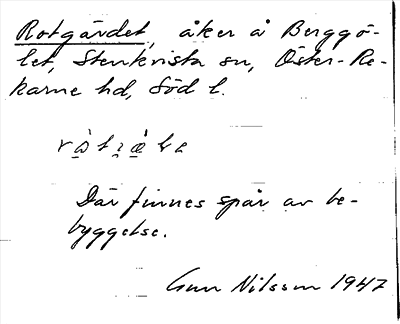 Rotgärdet, åker å Berggö-
let, Stenkvista sn, Öster-Re-
karne hd, Söd l.
Där finnes spår av be-
byggelse.
Gun Nilsson 1947